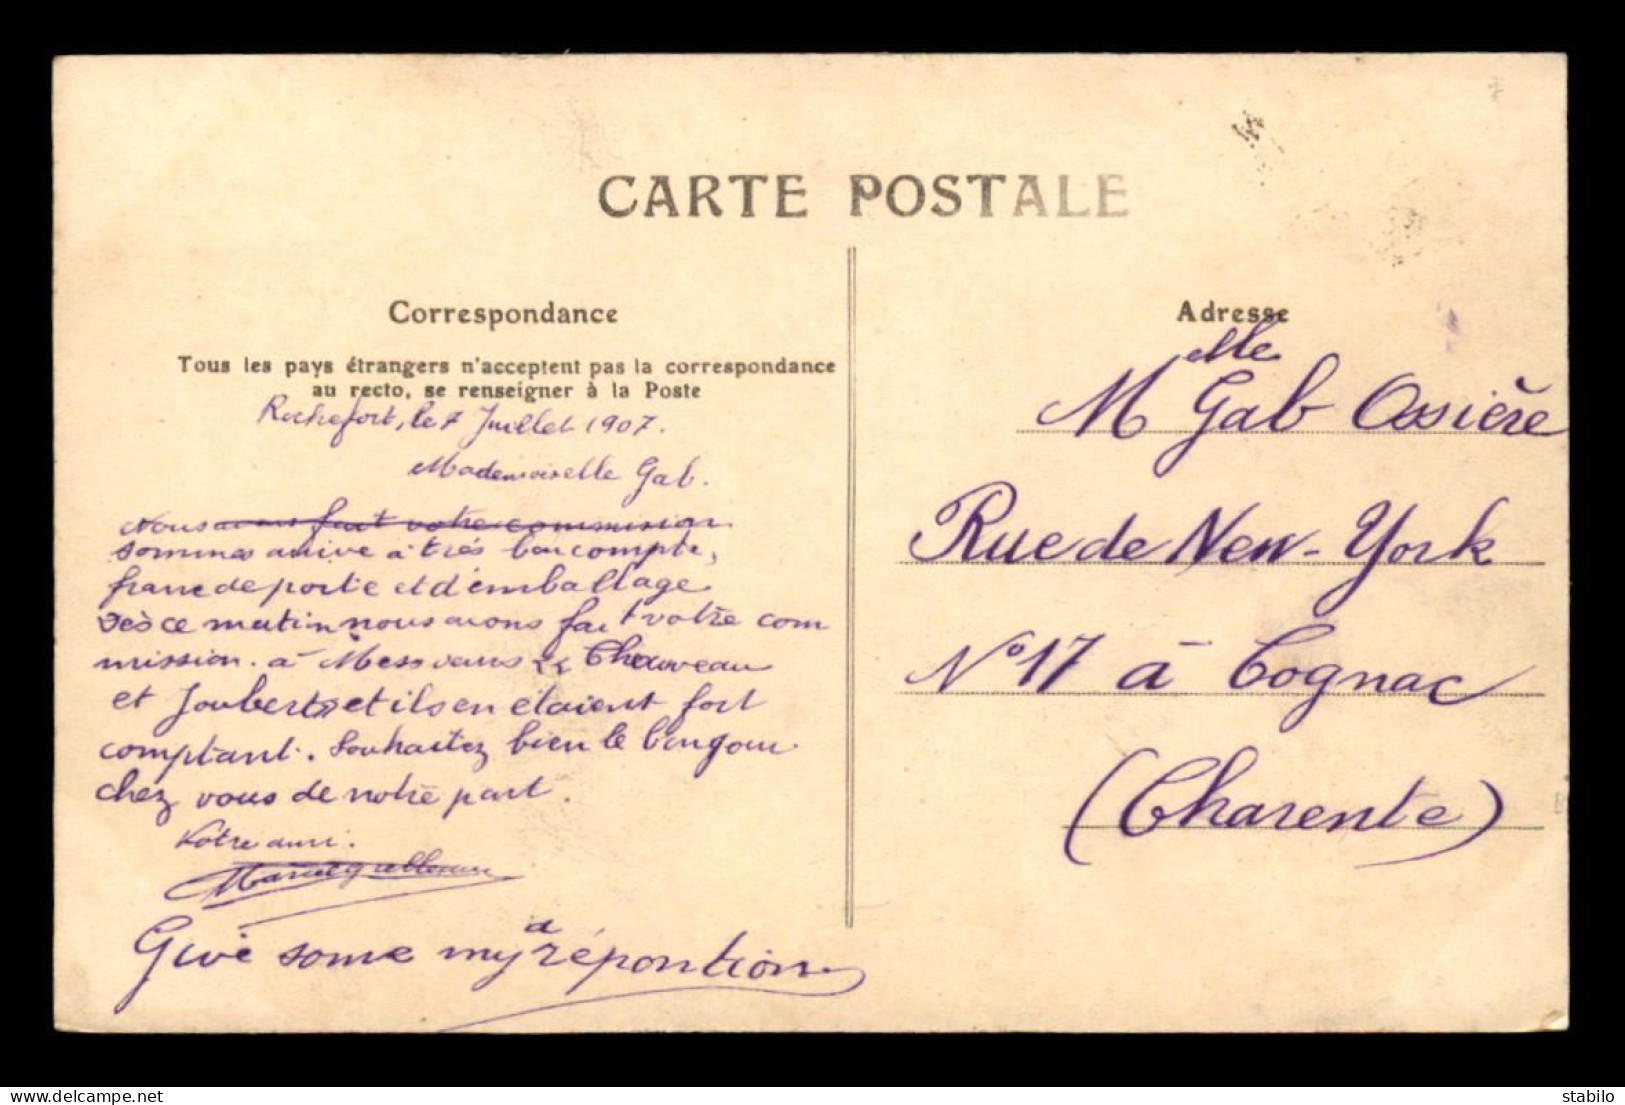 CARTE POSTALE
Correspondance
Tous les pays étrangers n'acceptent pas la correspondance
au recto, se renseigner à la Poste
Rochefort, le 7 Juillet 1907.
Mademoiselle Gab.
Nous avons fait votre commission
sommes arrivé à très bon compte,
franc de porte et d'emballage
Dès ce matin nous avons fait votre com
mission. à Messieurs Chauveau
et Joubert et ils en étaient fort
comptant. Souhaitez bien le bonjour
chez vous de notre part.
Votre ami.
Give some my a répontion
Adresse
Mlle Gab Ossière
Rue de New-York
N° 17 à Cognac
(Charente)
delcampe.net
stabilo